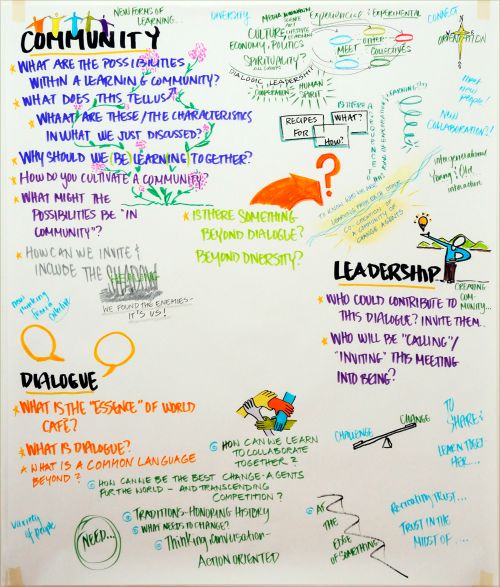 NEW FORMS OF
LEARNING...
COMMUNITY
WHAT ARE THE POSSIBILITIES
WITHIN A LEARNING COMMUNITY?
WHAT DOES THIS TELL US?
WHAAT ARE THESE/THE CHARACTERISTICS
IN WHAT WE JUST DISCUSSED?
WHY SHOULD WE BE LEARNING TOGETHER?
HOW DO YOU CULTIVATE A COMMUNITY?
WHAT MIGHT THE
POSSIBILITIES BE "IN
COMMUNITY"?
HOW CAN WE INVITE &
INCLUDE THE SHADOW
WE FOUND THE ENEMIES-
IT'S US!
DIVERSITY
CULTURE
ECONOMY, POLITICS
SPIRITUALITY
DIALOGIC LEADERSHIP
COOPERATION
HUMAN
SPIRIT
EXPERIENCES
EXPERIMENTAL
OTHER
MEET
COLLECTIVES
CONNECT
ORIENTATION
meet
new
people!
NEW
COLLABORATION?!
RECIPES
FOR
WHAT?
HOW?
IS THERE A
intergenerational
Young & Old
interaction
TO KNOW WHO WE ARE
LEARNING FROM EACH OTHER
CO-CREATION OF
A COMMUNITY OF
CHANGE AGENTS
IS THERE SOMETHING
BEYOND DIALOGUE?
BEYOND DIVERSITY?
LEADERSHIP
CREATING
COM-
MUNITY...
WHO COULD CONTRIBUTE TO
THIS DIALOGUE? INVITE THEM..
WHO WILL BE "CALLING"/
"INVITING" THIS MEETING
INTO BEING?
DIALOGUE
WHAT IS THE "ESSENCE" OF WORLD
CAFÉ?
WHAT IS DIALOGUE?
WHAT IS A COMMON LANGUAGE
BEYOND?
HOW CAN WE LEARN
TO COLLABORATE
TOGETHER?
HOW CAN WE BE THE BEST CHANGE-AGENTS
FOR THE WORLD - AND TRANSCENDING
COMPETITION?
CHALLENGE
CHANGE
TO
SHARE &
LEARN TOGET
HER....
variety
of people
NEED...
TRADITIONS-HONORING HISTORY
WHAT NEEDS TO CHANGE?
Thinking conversation-
ACTION ORIENTED
AT
THE
EDGE
OF SOMETHING
TRUST IN THE
MIDST OF...